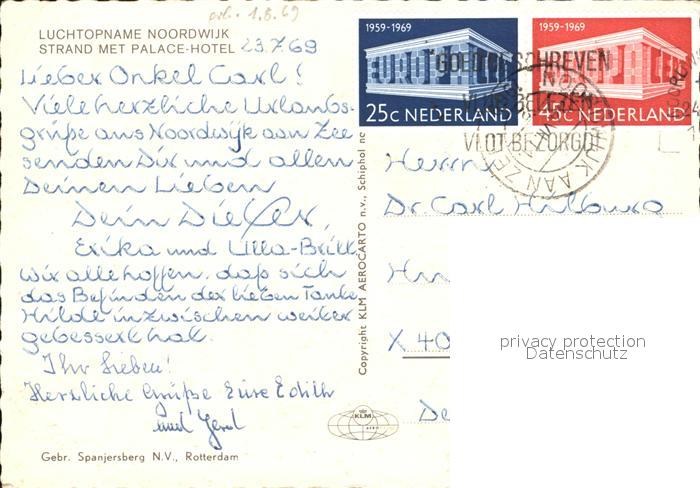 erh. 1.8.69
LUCHTOPNAME NOORDWIJK
STRAND MET PALACE-HOTEL 23.7.69
Lieber Onkel Carl!
Viele herzliche Urlaubs-
grüße aus Noordwijk aan Zee
senden Dir und allen
Deinen Lieben
Dein Dieter,
Erika und Ulla-Britt.
Wir alle hoffen, daß sich
das Befinden der lieben Tante
Hilde inzwischen weiter
gebessert hat.
Ihr Lieben!
Herzliche Grüße Eure Edith
und Gerd
KLM
Gebr. Spanjersberg N.V., Rotterdam
Copyright KLM AEROCARTO n.v., Schiphol
1959-1969
EUROPA CEPT
25c NEDERLAND
1959-1969
EUROPA CEPT
45c NEDERLAND
GOED BESCHREVEN
VLOT BEZORGD
NOORDWIJK AAN ZEE
Herrn
Dr. Carl
X 40
privacy protection
Datenschutz
De